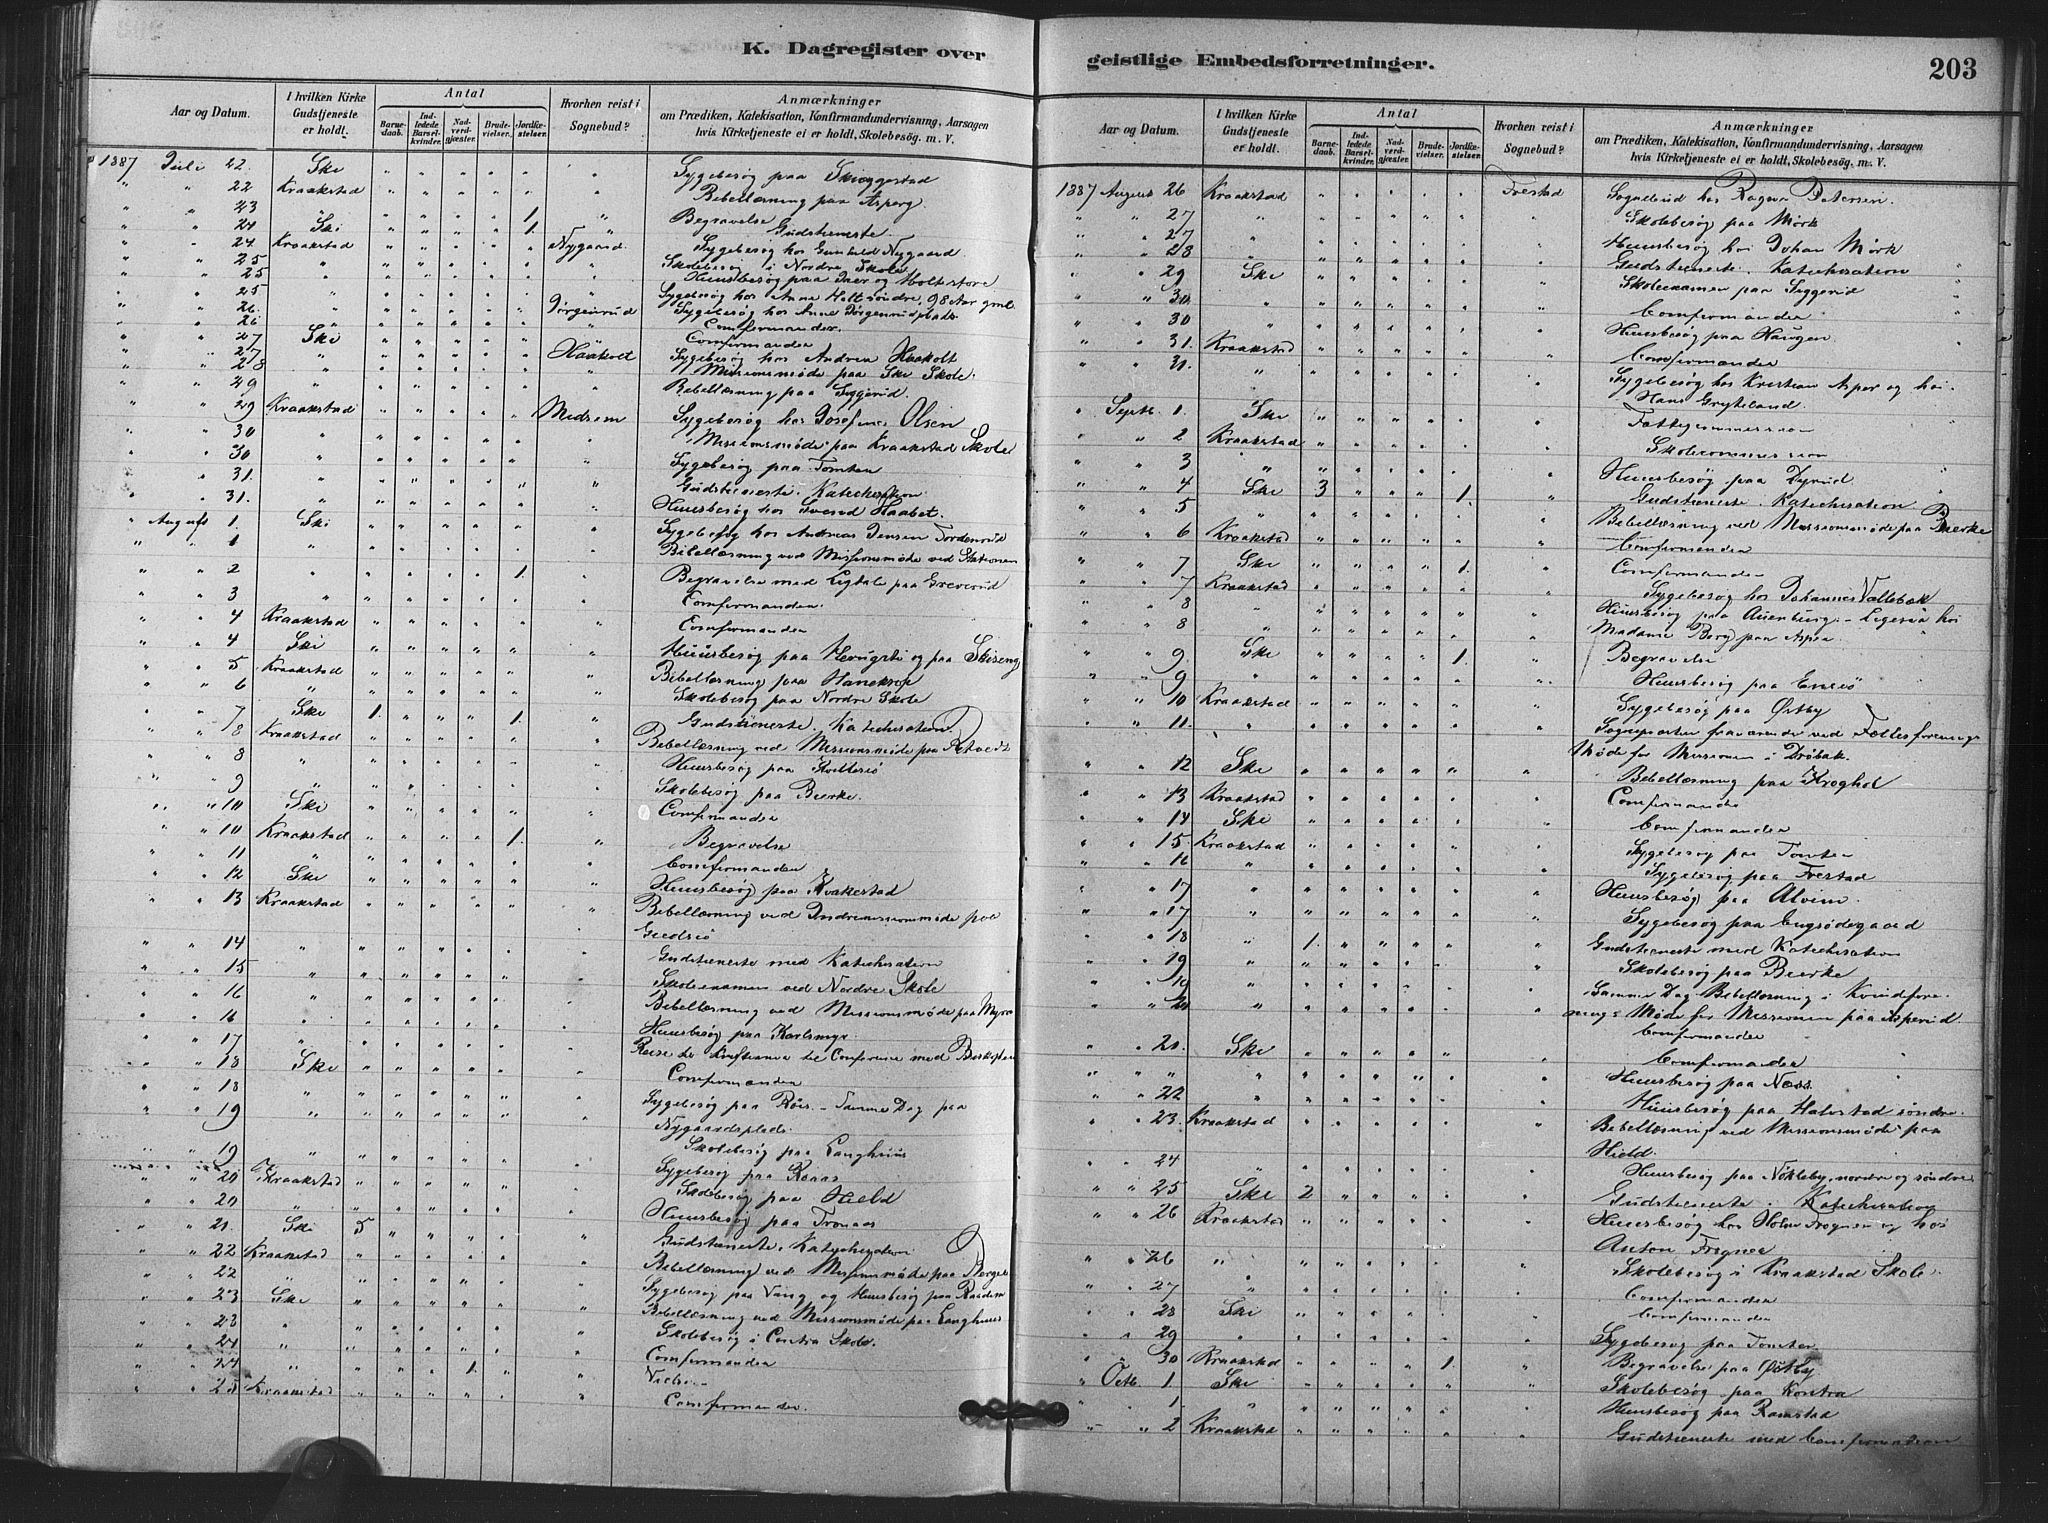 K. Dagregister over
Aar og Datum.
I hvilken Kirke Gudstjeneste er holdt.
Antal
Barnedaab.
Indledede Barselkvinder.
Nadverdgjæster.
Brudevielser.
Jordfæstelser.
Hvorhen reist i Sognebud?
Anmærkninger
om Prædiken, Katekisation, Konfirmandundervisning, Aarsagen
hvis Kirketjeneste ei er holdt, Skolebesög. m. V.
1887 Juli 22. Ski " " " " " " Sygebesøg paa Skuggestad
" " 22 Kraakstad " " " " " " Bibellæsning paa Asperg.
" " 23 " " " " " 1. " Begravelse
" " 24 Ski " " " " 1. " Gudstieneste
" " 24 Kraakstad " " " " " Nygaard Sygebesøg hos Gunhild Nygaard
" " 25 " " " " " " " Skolebesøg i Nordre Skole
" " 25 " " " " " " " Huusbesøg paa og Holtestore
" " 25 " " " " " " " Sygebesøg hos Anne Holt søndre, 98 Aar gml
" " 26 " " " " " " Jørgenrud Sygebesøg hos Anne Jørgenrudplads
" " 26 " " " " " " " Comfirmander.
" " 27 Ski " " " " " " Comfirmander
" " 27 " " " " " " Haakolt Sygebesøg hos Andrea Haakolt
" " 28 " " " " " " " Missionsmøde paa Ski Skole.
" " 29 " " " " " " " Bibellæsning paa Syggerud.
" " 29 Kraakstad " " " " " Midsem Sygebesøg hos Josefine Olsen
" " 30 " " " " " " " Missionsmøde paa Kraakstad Skole
" " 30 " " " " " " " Sygebesøg paa Tomten
" " 31 " " " " " " " Gudstieneste. Katechisation
" " 31. " " " " " " " Huusbesøg hos Haabet.
" August 1. Ski " " " " " " Sygebesøg hos Andreas Jensen Tordenrud
" " 1 " " " " " " " Bibellæsning ved Missionsmøde ved Stationen
" " 2 " " " " " 1. " Begravelse med Ligtale paa Greverud
" " 3 " " " " " " " Comfirmander.
" " 4 Kraakstad " " " " " " Comfirmander
" " 4 Ski " " " " " " Huusbesøg paa og paa Skiseng
" " 5 Kraakstad " " " " " " Bibellæsning paa
" " 6 " " " " " " " Skolebesøg paa Nordre Skole
" " 7 Ski 1. " " " 1. " Gudstieneste. Katechisation
" " 8 Kraakstad " " " " " " Bibellæsning ved Missionsmøde paa
" " 8 " " " " " " " Huusbesøg paa
" " 9 " " " " " " " Skolebesøg paa Bierke.
" " 10 Ski " " " " " " Comfirmander
" " 10 Kraakstad " " " " 1. " Begravelse
" " 11 " " " " " " " Comfirmander
" " 12 Ski " " " " " " Huusbesøg paa Kvakestad
" " 13 Kraakstad " " " " " " Bibellæsning ved Indremissionsmøde paa
" " 14 " " " " " " " Gudstieneste med Katechisation
" " 15 " " " " " " " Skoleexamen ved Nordre Skole
" " 16 " " " " " " " Bibellæsning ved Missionsmøde paa Myra
" " 16 " " " " " " " Huusbesøg paa Karlsmyr.
" " 17 " " " " " " " Reise til Kristiania til Conference med Biskopen
" " 18 Ski " " " " " " Comfirmander
" " 18 " " " " " " " Sygebesøg paa Røis. - Samme Dag paa
" " 19 " " " " " " " Nygaardsplads.
" " 19 " " " " " " " Skolebesøg paa Langhuus
" " 20 Kraakstad " " " " " " Sygebesøg paa Raaas
" " 20 " " " " " " " Skolebesøg paa Hield
Huusbesøg paa Tronaas
" " 21. Ski 5 " " " " " Gudstieneste. Katechisation
" " 22 Kraakstad " " " " " " Bibellæsning ved Missionsmøde paa
" " 22 " " " " " " " Sygebesøg paa Vang og Huusbesøg paa
" " 23 Ski " " " " " " Bibellæsning ved Missionsmøde paa Langhuus
" " 23 " " " " " " " Skolebesøg i Contra Skole.
" " 24 " " " " " " " Comfirmander
" " 24 " " " " 1. " " Vielse
" " 25 Kraakstad " " " " " " Comfirmander.
geistlige Embedsforretninger.
203
Aar og Datum.
I hvilken Kirke Gudstjeneste er holdt.
Antal
Barnedaab.
Indledede Barselkvinder.
Nadverdgjæster.
Brudevielser.
Jordfæstelser.
Hvorhen reist i Sognebud?
Anmærkninger
om Prædiken, Katekisation, Konfirmandundervisning, Aarsagen
hvis Kirketjeneste ei er holdt, Skolebesög. m. V.
1887 August 26 Kraakstad " " " " " Frestad Sognebud hos Ragna Petersen.
" " 27 " " " " " " " Skolebesøg paa Mörk
" " 27 " " " " " " " Huusbesøg hos Johan Mörk
" " 28 " " " " " " " Gudstieneste. Katechisation
" " 29 Ski " " " " " " Skoleexamen paa Syggerud
" " 30 " " " " " " " Comfirmander
" " 30 " " " " " " " Huusbesøg paa Haugen
" " 31. Kraakstad " " " " " " Comfirmander
" " 31. " " " " " " " Sygebesøg hos Kristian Asper og hos
Hans Gryteland.
" Septb. 1. Ski " " " " " " Fattigcommission
" " 2 Kraakstad " " " " " " Skolecommission
" " 3 " " " " " " " Huusbesøg paa Dyrud
" " 4 Ski 3 " " " 1. " Gudstieneste. Katechisation
" " 5 " " " " " " " Bibellæsning ved Missionsmøde paa Bierke
" " 6 Kraakstad " " " " " " Comfirmander
" " 7 Ski " " " " 1. " Comfirmander
" " 7 Kraakstad " " " " " " Sygebesøg hos Johannes Vallebæk
" " 8 " " " " " " " Huusbesøg paa Auenburg. - Ligesaa hos
" " 8 " " " " " " " Madame Berg paa Aspaa.
" " 9 Ski " " " " 1. " Begravelse
" " 9 " " " " " " " Huusbesøg paa
" " 10 Kraakstad " " " " " " Sygebesøg paa Østby
" " 11. " " " " " " " Sogneprest fraværende ved Fællesforenings
Møde for Missionen i Drøbak.
" " 12 Ski " " " " " " Bibellæsning paa Kroghol
" " 13 Kraakstad " " " " " " Comfirmander
" " 14 Ski " " " " " " Comfirmander
" " 15. Kraakstad " " " " " " Sygebesøg paa Tomten
" " 16 " " " " " " " Sygebesøg paa Frestad
" " 17 " " " " " " " Huusbesøg paa Alvim
" " 17 " " " " " " " Sygebesøg paa
" " 18 " 1. " " " " " Gudstieneste med Katechisation
" " 19 " " " " " " " Skolebesøg paa Bierke
" " 19 " " " " " " " Samme Dag Bibellæsning i Kvindefore-
" " 20 " " " " " " " nings Møde for Missionen paa Asperud.
Comfirmander
" " 21. Ski " " " " " " Comfirmander
" " " " " " " " " " Huusbesøg paa Næss.
" " 22 " " " " " " " Huusbesøg paa Halvstad søndre.
" " 23. Kraakstad " " " " " " Bibellæsning ved Missionsmøde paa
Hield.
" " 24 " " " " " " " Huusbesøg paa Nökleby, nordre og søndre
" " 25 Ski 2 " " " " " Gudstieneste. Katechisation
" " 26 Kraakstad " " " " " " Huusbesøg hos og hos
Anton
" " 26 " " " " " " " Skolebesøg i Kraakstad Skole.
" " 27 " " " " " " " Comfirmander
" " 28 Ski " " " " " " Comfirmander
" " 29 " " " " " " " Sygebesøg paa Tomter
" " 30 Kraakstad " " " " 1. " Begravelse paa Østby
" Octb. 1 Ski " " " " " " Skolebesøg paa Kontra
" " 1. " " " " " " " Huusbesøg paa Ramstad
" " 2 Kraakstad " " " " " " Gudstieneste med Comfirmation